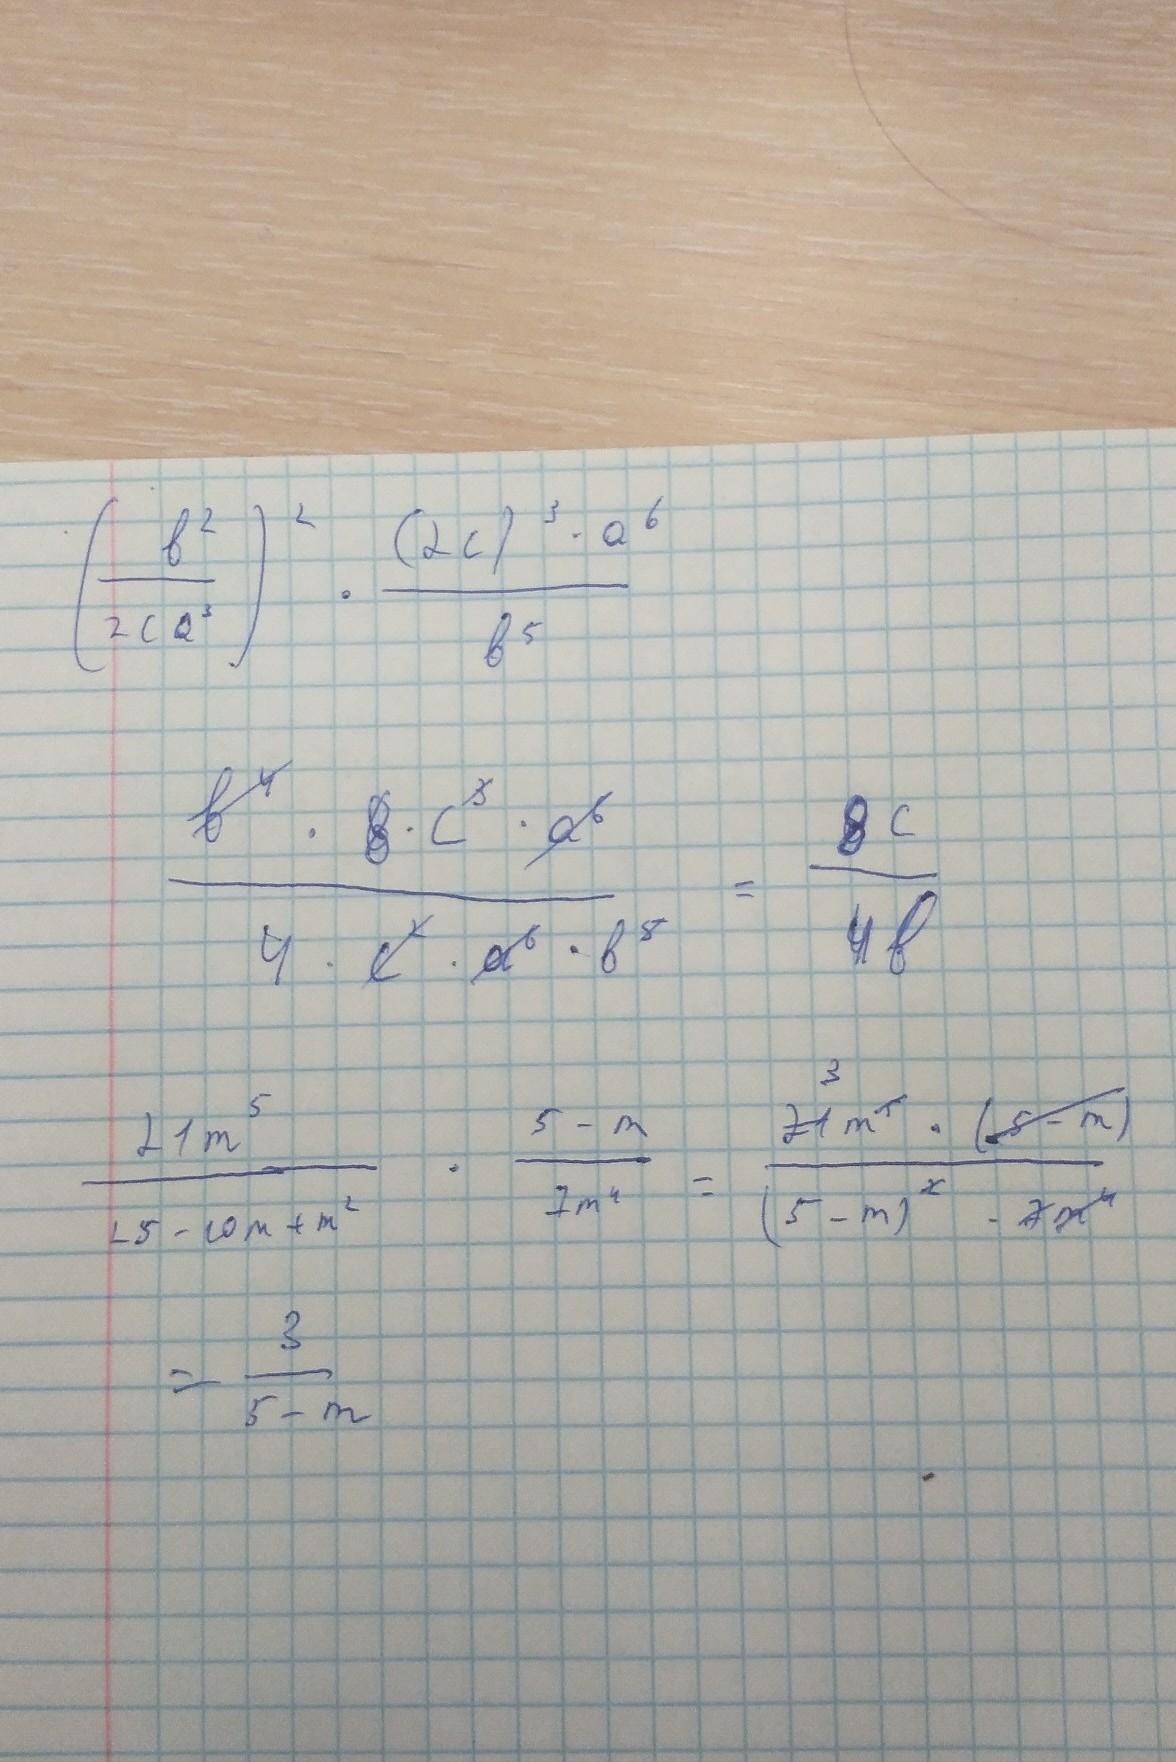 (b² / 2ca³)² · ((2c)³ · a⁶) / b⁵
(b⁴ · 8 · c³ · a⁶) / (4 · c² · a⁶ · b⁵) = 8c / 4b
21m⁵ / (25 - 10m + m²) · (5 - m) / 7m⁴ = (21m⁵ · (5 - m)) / ((5 - m)² · 7m⁴) 3
= 3 / (5 - m)